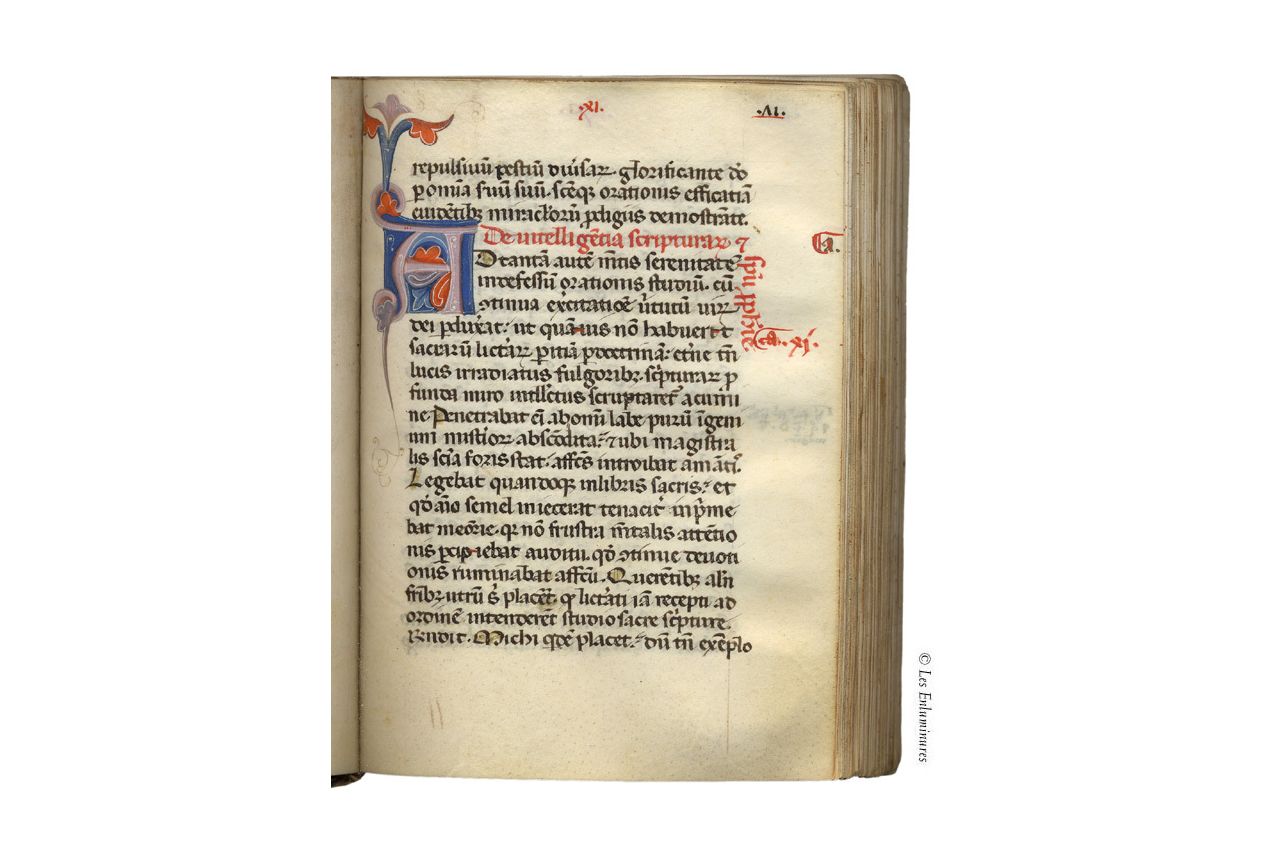 .XI.
.VI.
repulsivū pestiū diu̓saꝝ. glorificante dō
ꝑ om̄ia s̓uū suū. scēq; orationis efficatiā
euidētib; miracl̓orū ꝓdigiis demōstrāte.
De intelligētia scripturaꝝ ⁊
sp̄u ꝓph̄ie
Ca. xj.
A Dtantā autē mētis serenitatē
indefessū orationis studiū. cū
ꝯtinua exc̓itatiōe u̓tutū uiꝝ
dei ꝑduxat. ut quāuis nō habuerit
sacrarū litt̓aꝝ ꝑitiā ꝑ doctrinā. et̓ne tn̄
lucis irradiatus fulgorib; sc̓pturaꝝ ꝓ
funda miro intll̓ectus scrutaret̓ acumi
ne Penetrabat eī ab om̄i labe purū īgeni
um mist̓ioꝝ abscōdita. ⁊ ubi magistra
lis scīa foris stat. affc̄s introibat amātis.
Legebat quandoq; in libris sacris. et
qd̓ aīo semel iniecerat tenacit̓ inp̄me
bat meōrie. qr nō frustra mētalis attētio
nis ꝑcipiebat auditu. qd̓ ꝯtinue deuoti
onis ruminabat affc̄u. Querētib; aliq̄n
fr̄ib; utrū s̓ placēt. qd̓ litt̓ati iā recepti ad
ordinē intenderēt studio sacre sc̓pture.
Rn̄dit. Michi qdē placet. dū tn̄ exēplo
© Les Enluminures